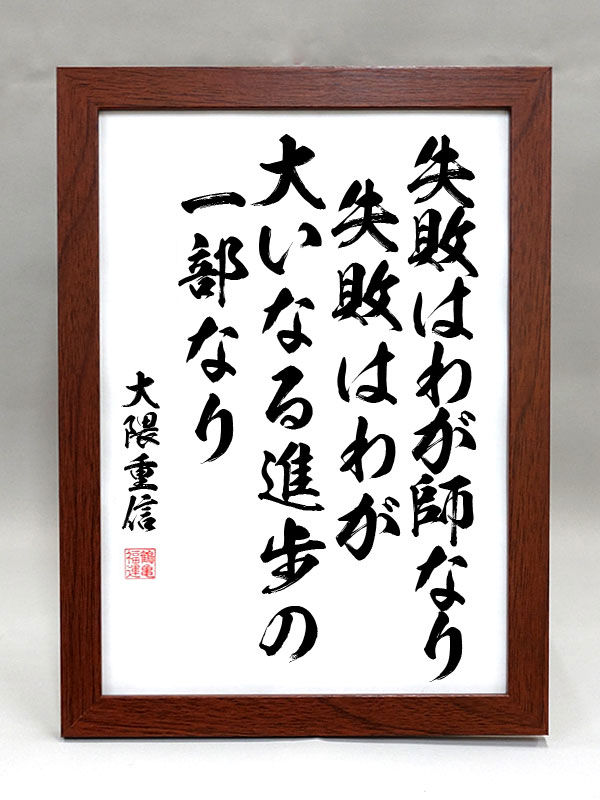 失敗はわが師なり
失敗はわが
大いなる進歩の
一部なり
大隈重信
鶴亀
福運